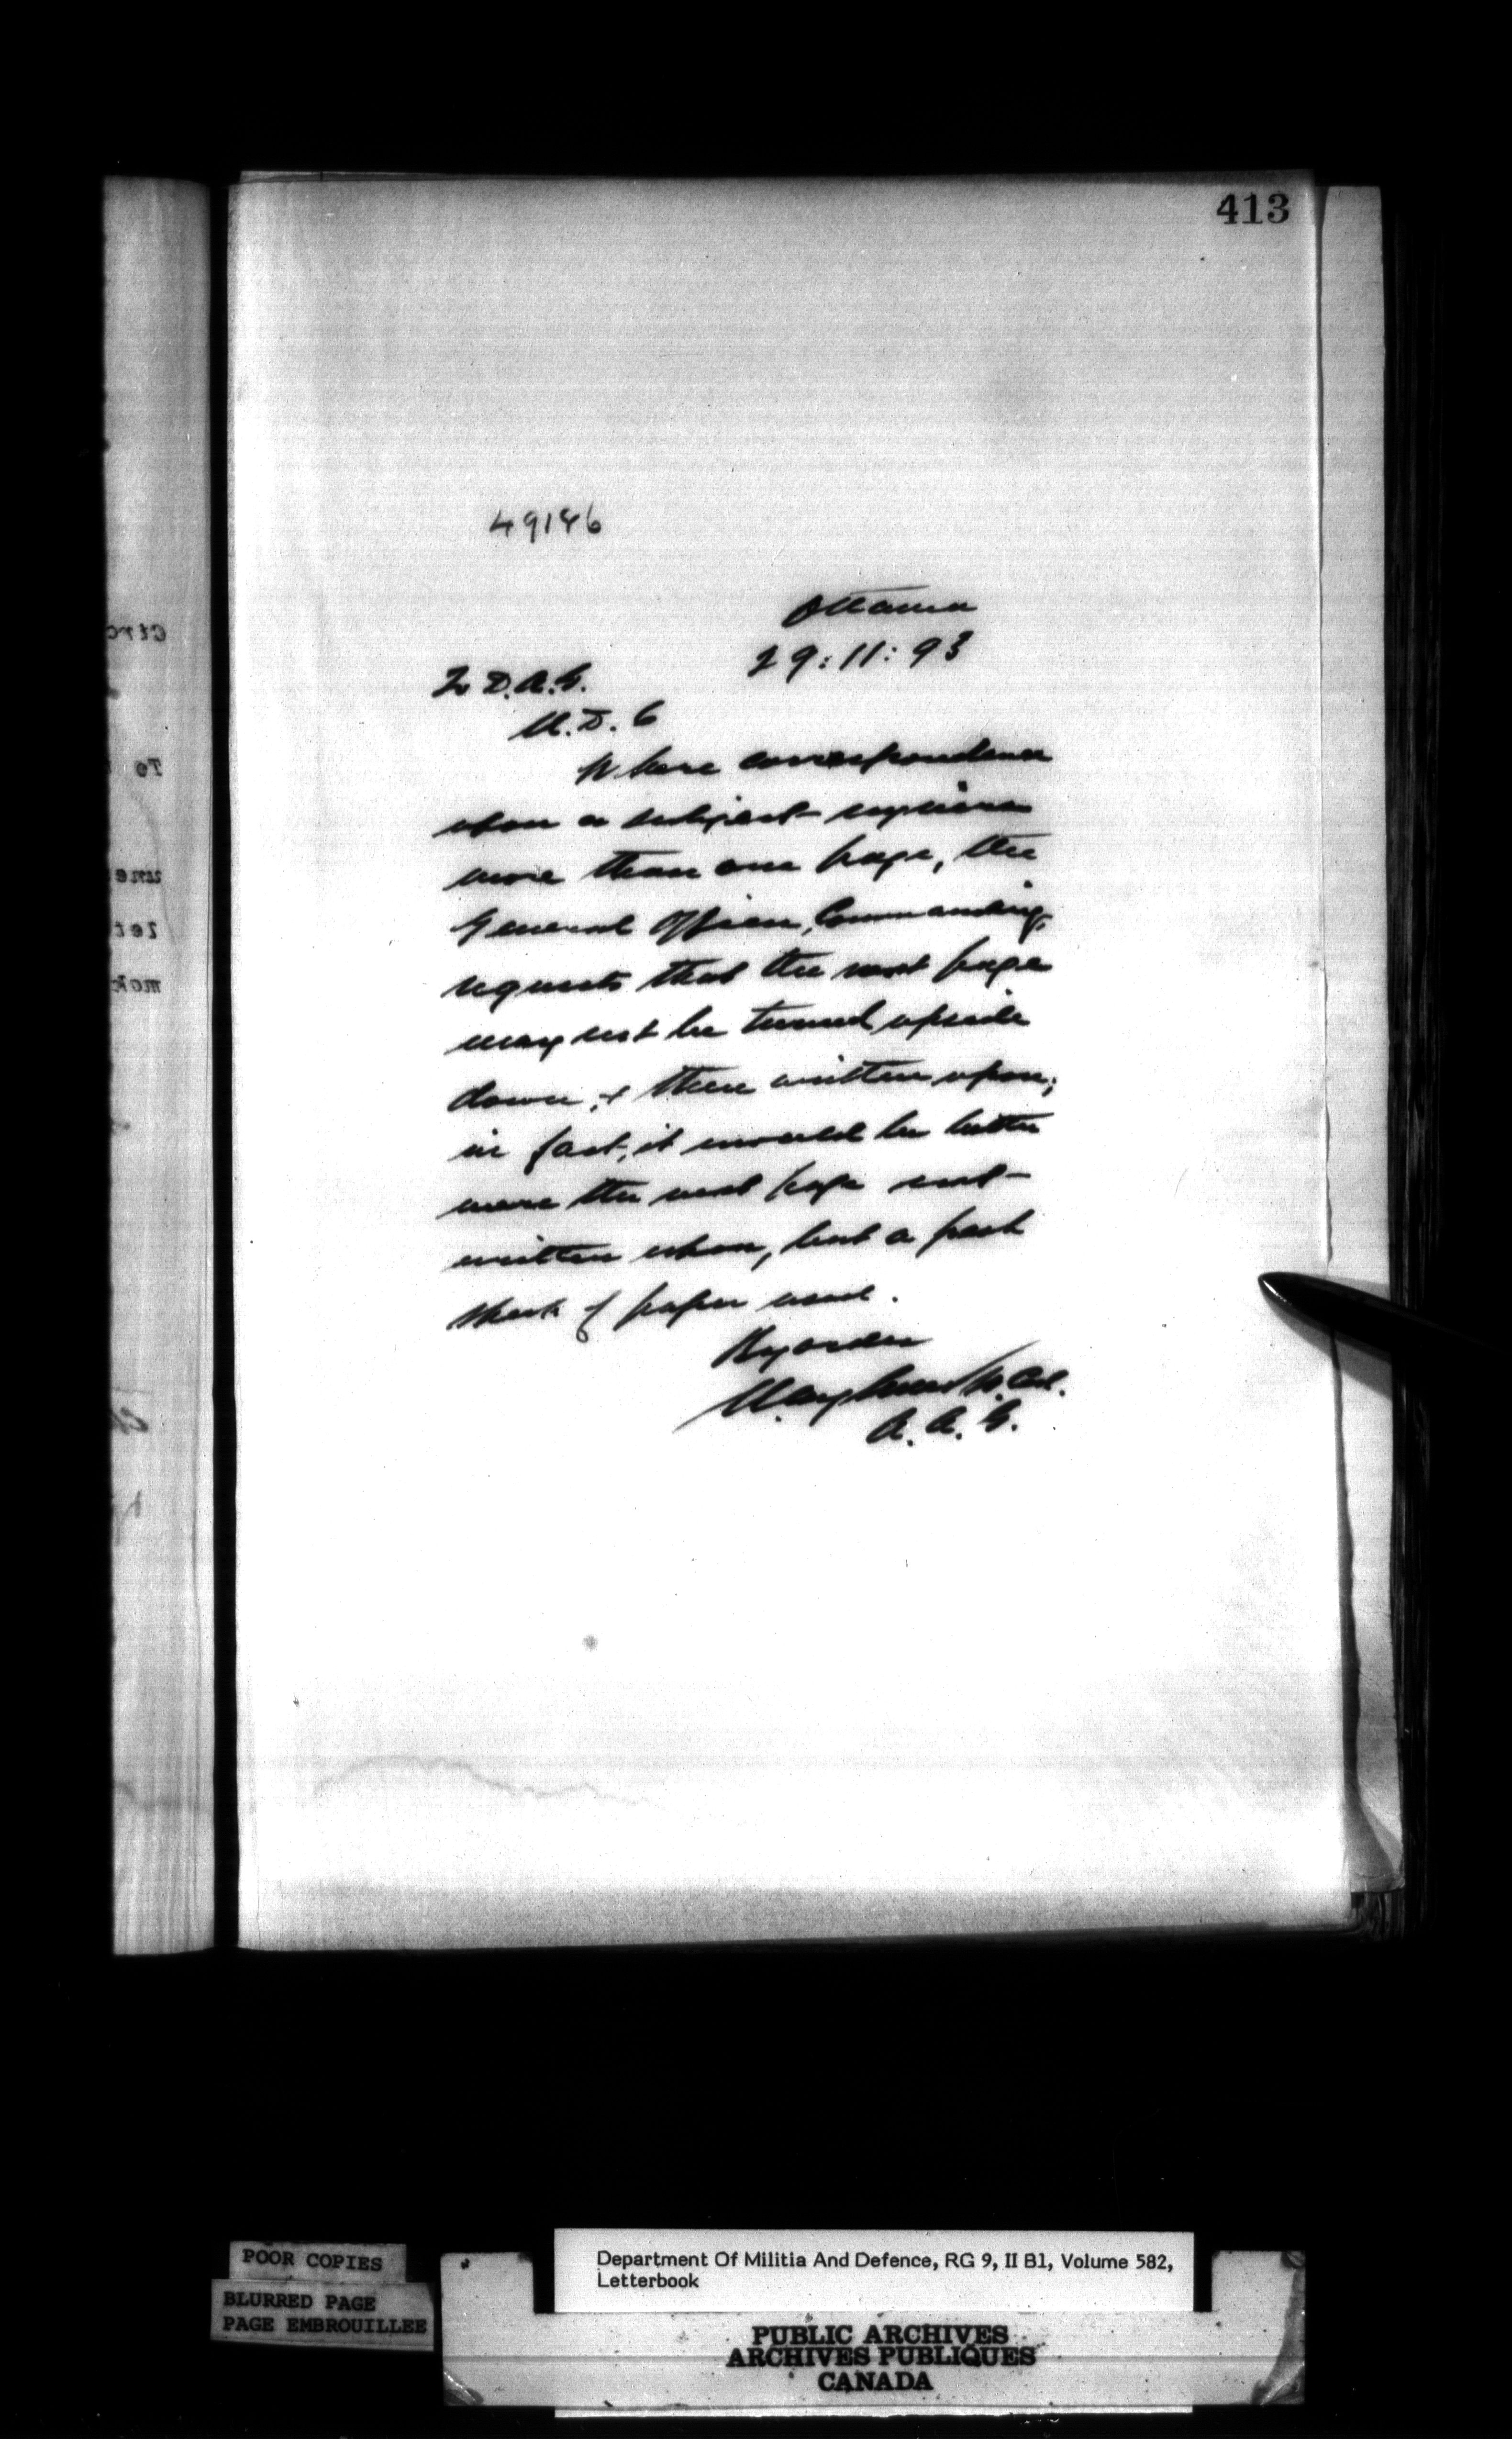 413
49146
Ottawa
29:11:93
To D.A.G.
M.D. 6
Where correspondence
upon a subject requires
more than one page, the
General Officer Commanding,
requests that the next page
may not be turned upside
down, & then written upon;
in fact, it would be better
were the next page not
written upon, but a fresh
sheet of paper used.
By order
Lt. Col.
A.A.G.
POOR COPIES
BLURRED PAGE
PAGE EMBROUILLEE
Department Of Militia And Defence, RG 9, II B1, Volume 582,
Letterbook
PUBLIC ARCHIVES
ARCHIVES PUBLIQUES
CANADA